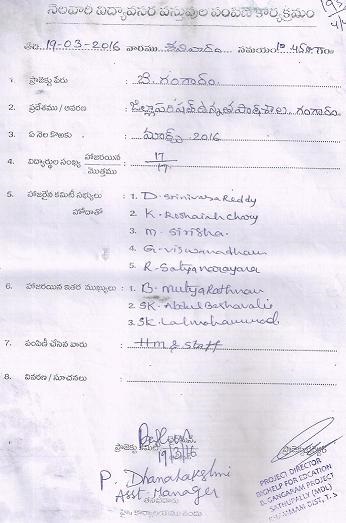 నెలవారి విద్యావసర వస్తువుల పంపిణీ కార్యక్రమం
తేది 19-03-2016 వారము శనివారం సమయం
1. ప్రాజెక్టు పేరు : బి. గంగారం
2. ప్రదేశము / ఆవరణ : జిల్లా పరిషత్ ఉన్నత పాఠశాల, గంగారం
3. ఏ నెల కొరకు : మార్చి 2016
4. విద్యార్థుల సంఖ్య హాజరయిన : 17
మొత్తము 17
5. హాజరైన కమిటీ సభ్యులు : 1. D. Srinivasa Reddy
హోదాతో 2. K. Roshaiah Chary
3. M. Sirisha.
4. G. Viswanadham
5. R. Satyanarayana
6. హాజరయిన ఇతర ముఖ్యులు : 1. B. Mutya Rathnam
2. SK. Abdul Basharali
3. SK. Lal mohammad
7. పంపిణీ చేసిన వారు : HM & Staff
8. వివరణ / సూచనలు :
ప్రాజెక్టు
19/3/16
P. Dhanalakshmi
Asst. Manager
PROJECT DIRECTOR
RICHELP FOR EDCATION
B. GANGARAM PROJECT
SATHUPALLY (MDL)
KHAMMAM DIST, T.S